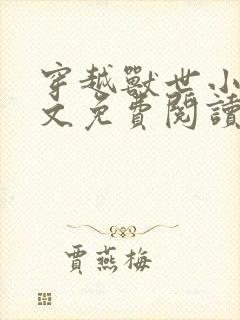 穿越獸世小
文免費閱讀
賈燕梅